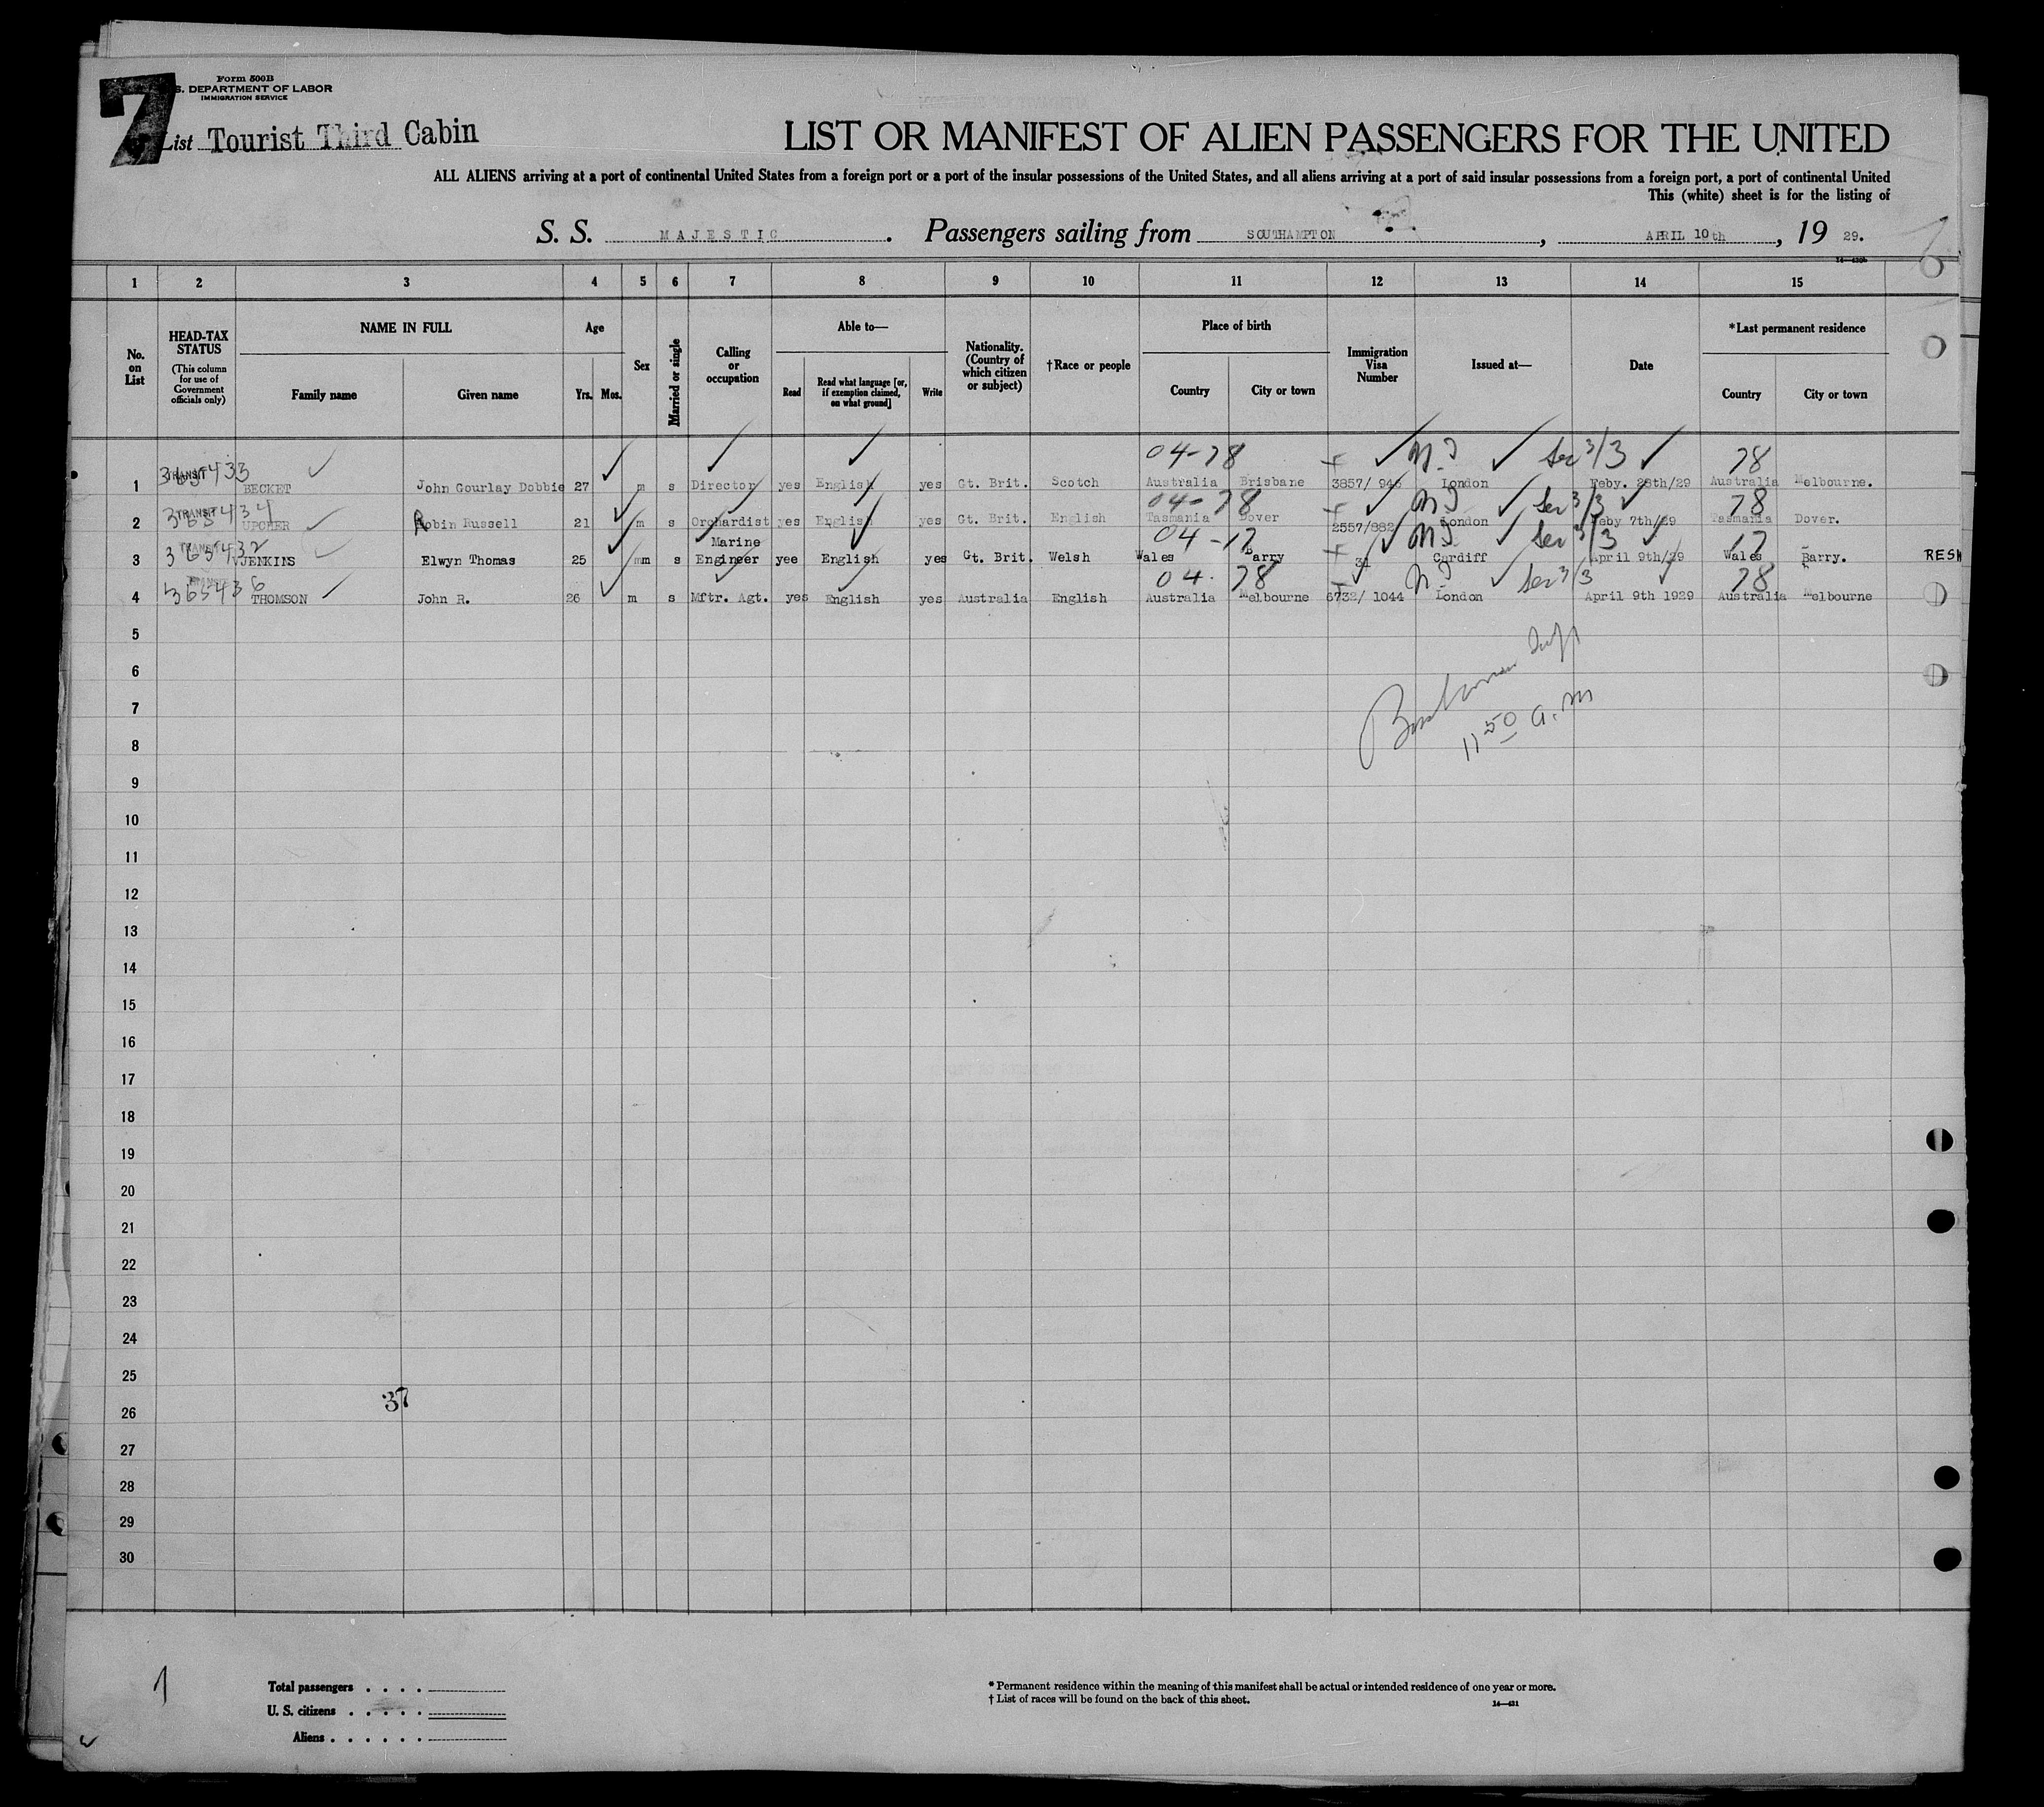 7
Form 500B
S. DEPARTMENT OF LABOR
IMMIGRATION SERVICE
List Tourist Third Cabin
LIST OR MANIFEST OF ALIEN PASSENGERS FOR THE UNITED
ALL ALIENS arriving at a port of continental United States from a foreign port or a port of the insular possessions of the United States, and all aliens arriving at a port of said insular possessions from a foreign port, a port of continental United
This (white) sheet is for the listing of
S. S. MAJESTIC. Passengers sailing from SOUTHAMPTON, APRIL 10th, 19 29.
14—430b
1 2 3 4 5 6 7 8 9 10 11 12 13 14 15
No. on List
HEAD-TAX STATUS (This column for use of Government officials only)
NAME IN FULL
Family name Given name
Age
Yrs. Mos.
Sex
Married or single
Calling or occupation
Able to—
Read Read what language [or, if exemption claimed, on what ground] Write
Nationality. (Country of which citizen or subject)
†Race or people
Place of birth
Country City or town
Immigration Visa Number
Issued at—
Date
*Last permanent residence
Country City or town
04-78 N.I Sec 3/3 78
1 TRANSIT 365433 BECKET John Gourlay Dobbie 27 m s Director yes English yes Gt. Brit. Scotch Australia Brisbane 3857/ 946 London Feby. 28th/29 Australia Melbourne.
04-78 N.I Sec 3/3 78
2 TRANSIT 365434 UPCHER Robin Russell 21 m s Orchardist yes English yes Gt. Brit. English Tasmania Dover 2557/882 London Feby 7th/29 Tasmania Dover.
04-17 N.I Sec 3/3 17
3 TRANSIT 365432 JENKINS Elwyn Thomas 25 mm s Marine Engineer yee English yes Gt. Brit. Welsh Wales Barry 31 Cardiff April 9th/29 Wales Barry. RESH
04. 78 N.I Sec 3/3 78
4 TRANSIT 365436 THOMSON John R. 26 m s Mftr. Agt. yes English yes Australia English Australia Melbourne 6732/ 1044 London April 9th 1929 Australia Melbourne
5
6
7
11 50 a.m
8
9
10
11
12
13
14
15
16
17
18
19
20
21
22
23
24
25
37
26
27
28
29
30
1
Total passengers . . . .
U. S. citizens . . . . .
Aliens . . . . . .
* Permanent residence within the meaning of this manifest shall be actual or intended residence of one year or more.
† List of races will be found on the back of this sheet.
14—431